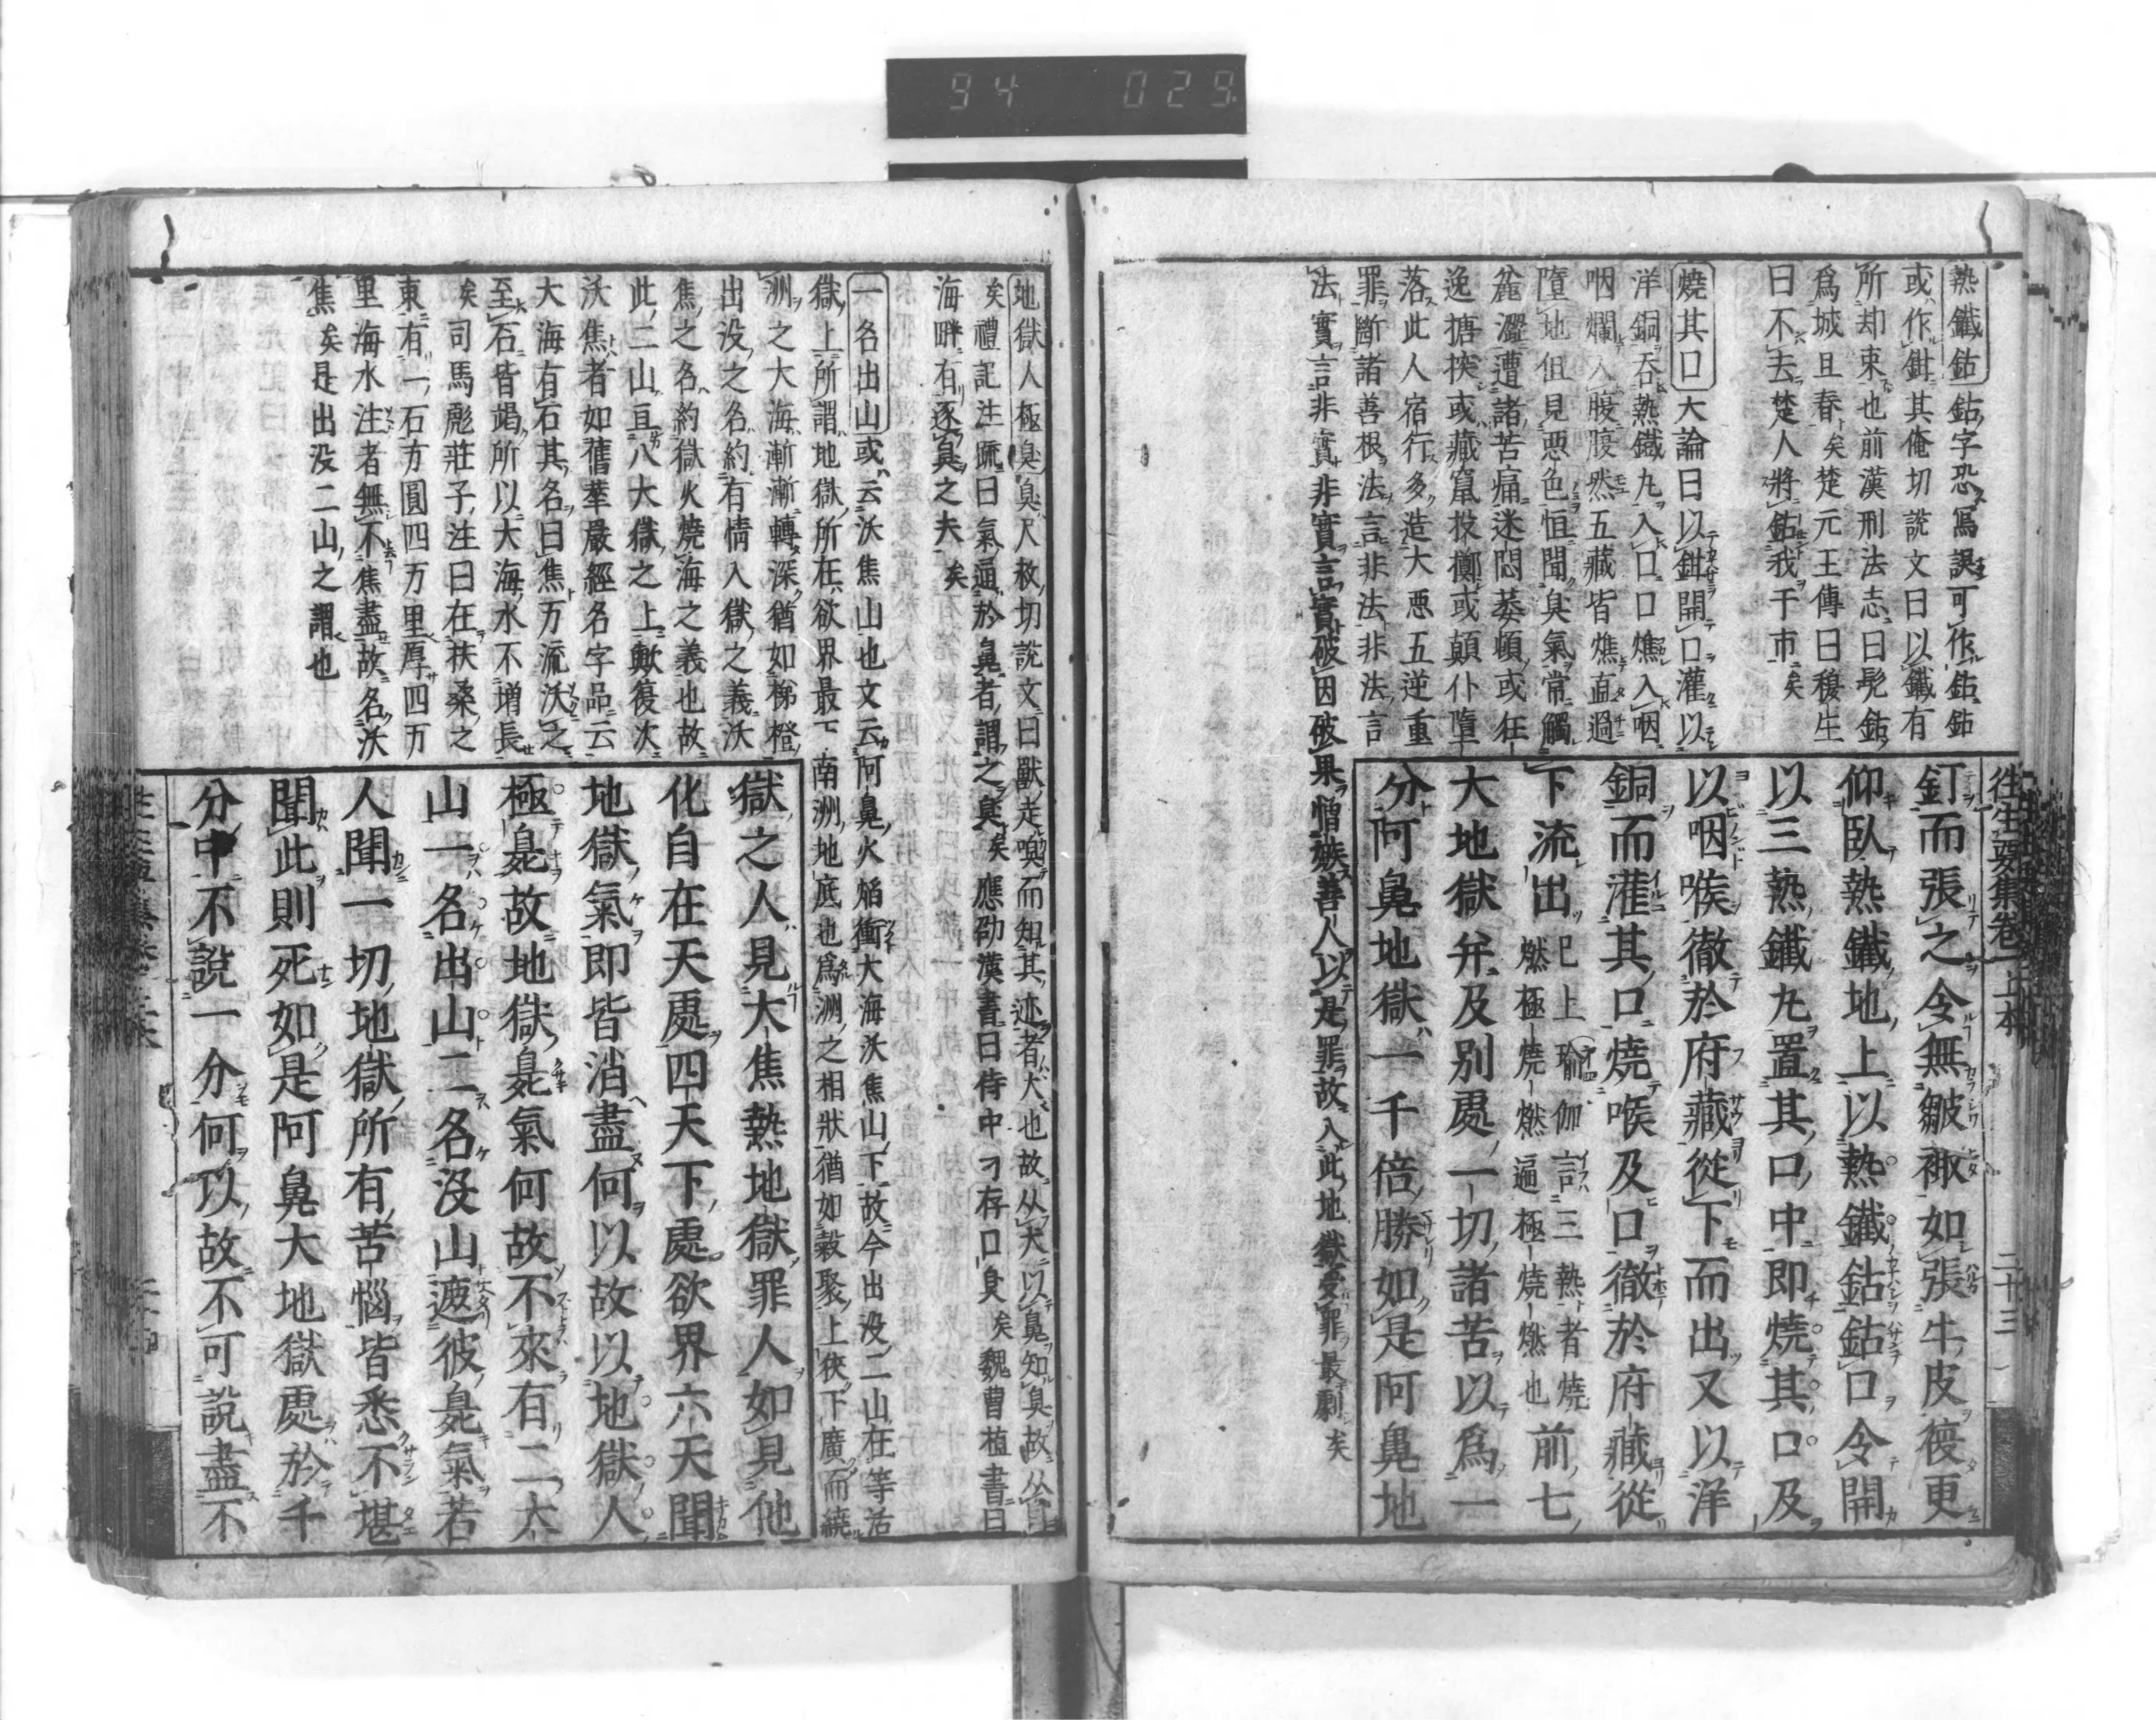 94 029
往生要集卷上本
二十三
熱鐵鈷鈷字恐寫誤可作鉆鉆
或作鉗其俺切説文曰以鐵有
所却束也前漢刑法志曰髡鉆
爲城旦舂矣楚元王傳曰穆生
曰不去楚人將鉆我于市矣
燒其口大論曰以鉗開口灌以
洋銅吞熱鐵丸入口口燋入咽
咽爛入腹腹然五藏皆燋直過
墮地但見惡色恒聞臭氣常觸
麁澀遭諸苦痛迷悶萎頓或狂
逸搪揬或藏竄投擲或顛仆墮
落此人宿行多造大惡五逆重
罪斷諸善根法言非法非法言
法實言非實非實言實破因破果憎嫉善人以是罪故入此地獄受罪最劇矣
釘而張之令無皺襵如張牛皮復更
仰臥熱鐵地上以熱鐵鈷鈷口令開
以三熱鐵丸置其口中即燒其口及
以咽喉徹於府藏從下而出又以洋
銅而灌其口燒喉及口徹於府藏從
下流出已上瑜伽言三熱者燒燃極燒燃遍極燒燃也前七
大地獄并及別處一切諸苦以爲一
分阿鼻地獄一千倍勝如是阿鼻地
地獄人極臭臭尺救切説文曰獸走嗅而知其迹者犬也故从犬以鼻知臭故从自
矣禮記注疏曰氣通於鼻者謂之臭矣應劭漢書曰侍中刁存口臭矣魏曹植書曰
海畔有逐臭之夫矣
一名出山或云沃焦山也文云阿鼻火焔衝大海沃焦山下故今出没二山在等活
獄上所謂地獄所在欲界最下南洲地底也爲洲之相狀猶如穀聚上狹下廣而繞
洲之大海漸漸轉深猶如梯橙
出没之名約有情入獄之義沃
焦之名約獄火燒海之義也故
此二山亘八大獄之上歟復次
沃焦者如舊華嚴經名字品云
大海有石其名曰焦万流沃之
至石皆竭所以大海水不増長
矣司馬彪莊子注曰在扶桑之
東有一石方圓四万里厚四万
里海水注者無不焦盡故名沃
焦矣是出没二山之謂也
獄之人見大焦熱地獄罪人如見他
化自在天處四天下處欲界六天聞
地獄氣即皆消盡何以故以地獄人
極臰故地獄臰氣何故不來有二大
山一名出山二名没山遮彼臰氣若
人聞一切地獄所有苦惱皆悉不堪
聞此則死如是阿鼻大地獄處於千
分中不説一分何以故不可説盡不